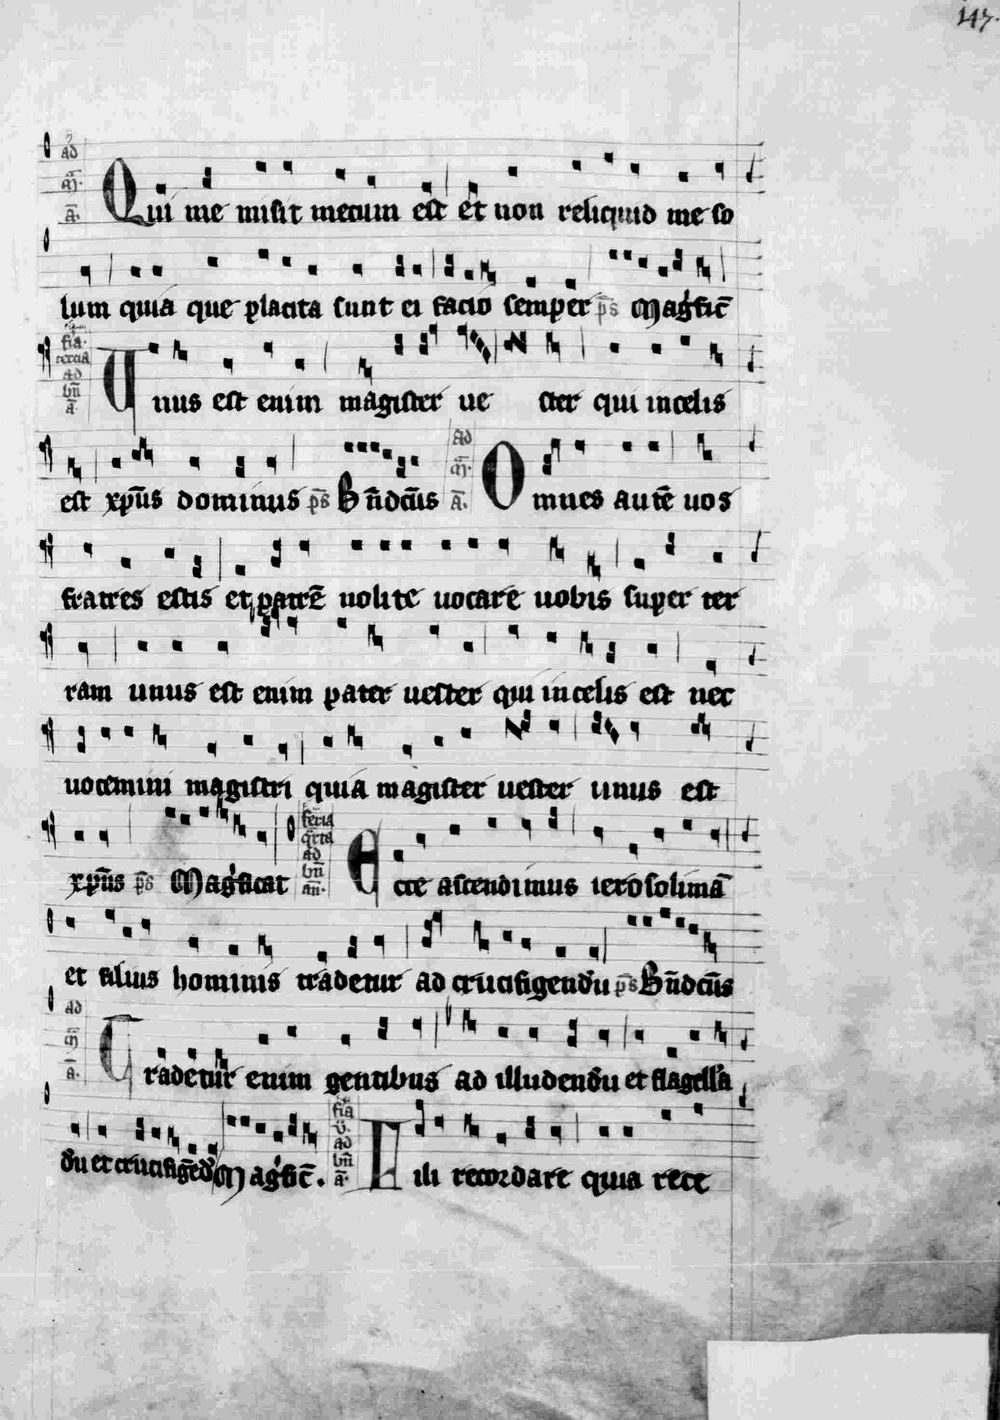 147.
ad m̄. a̅. Qui me misit mecum est et non reliquid me so
lum quia que placita sunt ei facio semper p̄s Magn̄fic̄
fr̄ia tercia ad bn̄ a̅ Unus est enim magister ue ster qui in celis
est xp̄us dominus p̄s Bn̄dcūs ad m̄. a̅. Omnes autē uos
fratres estis et patrē nolite uocare uobis super ter
ram unus est enim pater uester qui in celis est nec
uocemini magistri quia magister uester unus est
xp̄us p̄s Magn̄ficat feria q̄rta ad bn̄ an̄. Ecce ascendimus ierosolimā
et filius hominis tradetur ad crucifigendū p̄s Bn̄dcūs
ad m̄ a̅. Tradetur enim gentibus ad illudendū et flagella
dū et crucifigēdū Magn̄fic̄. fr̄ia v. ad bn̄ a̅. Fili recordare quia rece